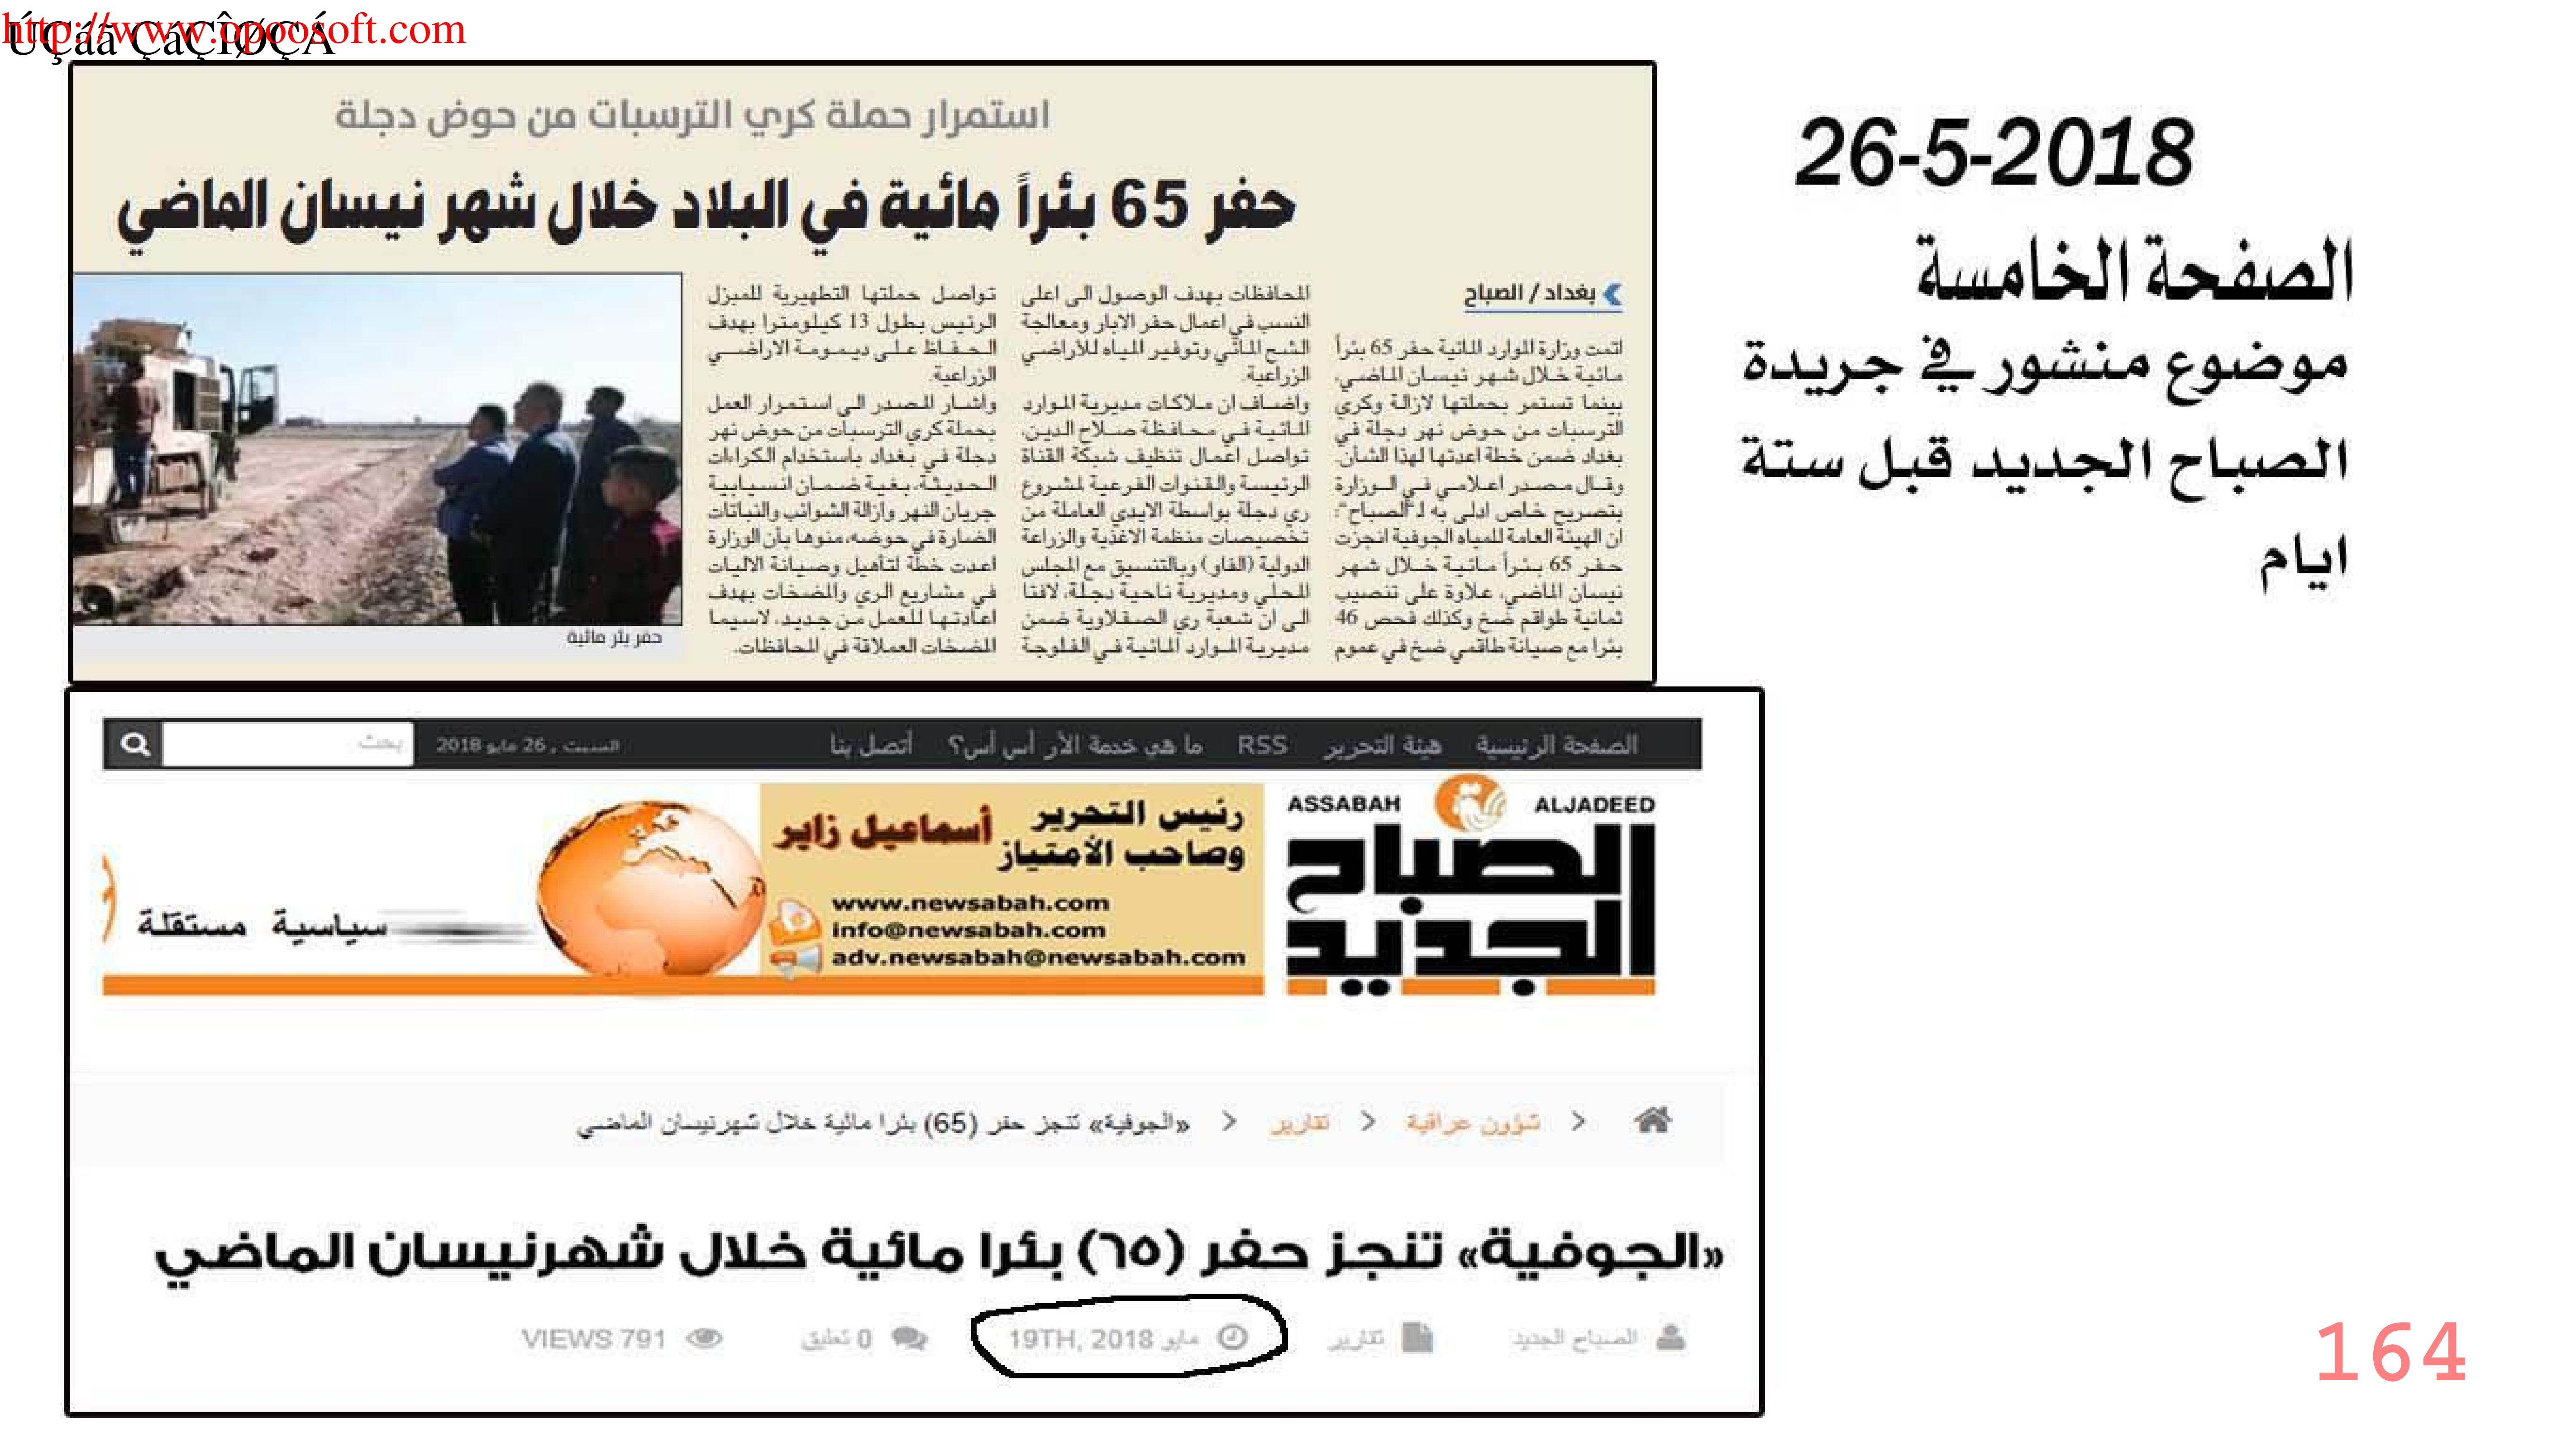 http://www.opoosoft.com
ÚÇáã ÇáÇÎØÇÁ
26-5-2018
الصفحة الخامسة
موضوع منشور في جريدة
الصباح الجديد قبل ستة
ايام
استمرار حملة كري الترسبات من حوض دجلة
حفر 65 بئراً مائية في البلاد خلال شهر نيسان الماضي
بغداد / الصباح
اتمت وزارة الموارد المائية حفر 65 بئراً
مائية خلال شهر نيسان الماضي،
بينما تستمر بحملتها لازالة وكري
الترسبات من حوض نهر دجلة في
بغداد ضمن خطة اعدتها لهذا الشأن.
وقال مصدر اعلامي في الوزارة
بتصريح خاص ادلى به لـ"الصباح":
ان الهيئة العامة للمياه الجوفية انجزت
حفر 65 بئراً مائية خلال شهر
نيسان الماضي، علاوة على تنصيب
ثمانية طواقم ضخ وكذلك فحص 46
بئرا مع صيانة طاقمي ضخ في عموم
المحافظات بهدف الوصول الى اعلى
النسب في اعمال حفر الابار ومعالجة
الشح المائي وتوفير المياه للاراضي
الزراعية.
واضاف ان ملاكات مديرية الموارد
المائية في محافظة صلاح الدين،
تواصل اعمال تنظيف شبكة القناة
الرئيسة والقنوات الفرعية لمشروع
ري دجلة بواسطة الايدي العاملة من
تخصيصات منظمة الاغذية والزراعة
الدولية (الفاو) وبالتنسيق مع المجلس
المحلي ومديرية ناحية دجلة، لافتا
الى ان شعبة ري الصقلاوية ضمن
مديرية الموارد المائية في الفلوجة
تواصل حملتها التطهيرية للمبزل
الرئيس بطول 13 كيلومترا بهدف
الحفاظ على ديمومة الاراضي
الزراعية.
واشار المصدر الى استمرار العمل
بحملة كري الترسبات من حوض نهر
دجلة في بغداد باستخدام الكراءات
الحديثة، بغية ضمان انسيابية
جريان النهر وازالة الشوائب والنباتات
الضارة في حوضه، منوها بأن الوزارة
اعدت خطة لتأهيل وصيانة الاليات
في مشاريع الري والمضخات بهدف
اعادتها للعمل من جديد، لاسيما
المضخات العملاقة في المحافظات.
حفر بئر مائية
الصفحة الرئيسية هيئة التحرير RSS ما هي خدمة الأر أس أس؟ أتصل بنا السبت , 26 مايو 2018 بحث
ASSABAH ALJADEED
الصباح
الجديد
رئيس التحرير
وصاحب الأمتياز أسماعيل زاير
www.newsabah.com
info@newsabah.com
adv.newsabah@newsabah.com
سياسية مستقلة
شؤون عراقية تقارير «الجوفية» تنجز حفر (65) بئرا مائية خلال شهرنيسان الماضي
«الجوفية» تنجز حفر (٦٥) بئرا مائية خلال شهرنيسان الماضي
الصباح الجديد تقارير مايو 19TH, 2018 0 تعليق VIEWS 791
164